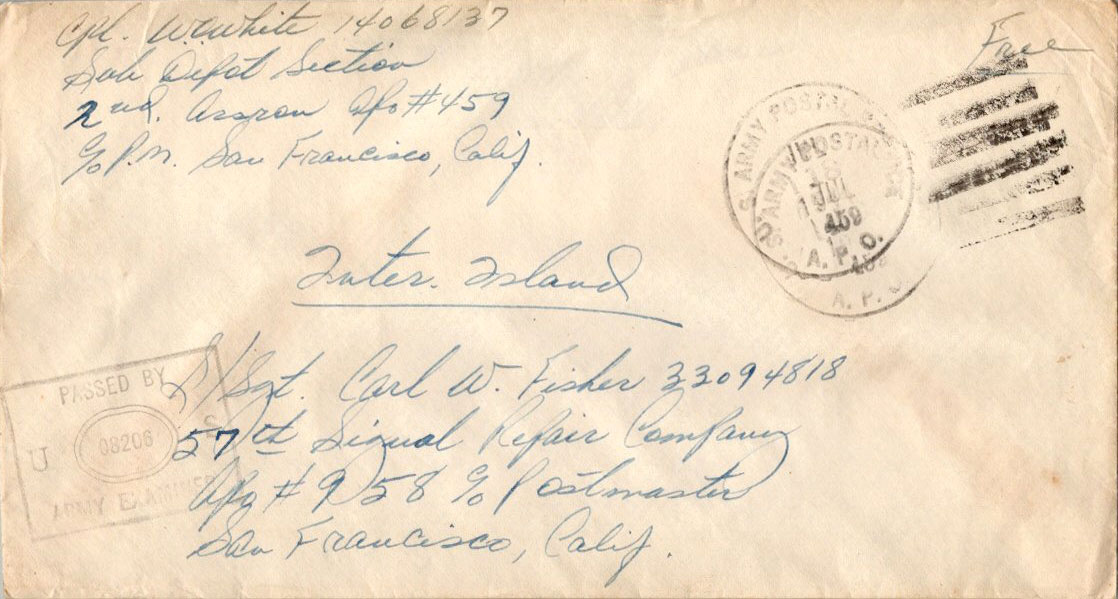 Cpl. W.C. White 14068137
Sub Depot Section
2nd. Assron Apo #459
c/o P.M. San Francisco, Calif.
Free
U.S. ARMY POSTAL SERVICE
18
JUL
A.P.O.
459
A. P. O.
Inter. Island
PASSED BY
U 08206 S
ARMY EXAMINER
S/Sgt. Carl W. Fisher 33094818
57th Signal Repair Company
Apo #958 c/o Postmaster
San Francisco, Calif.